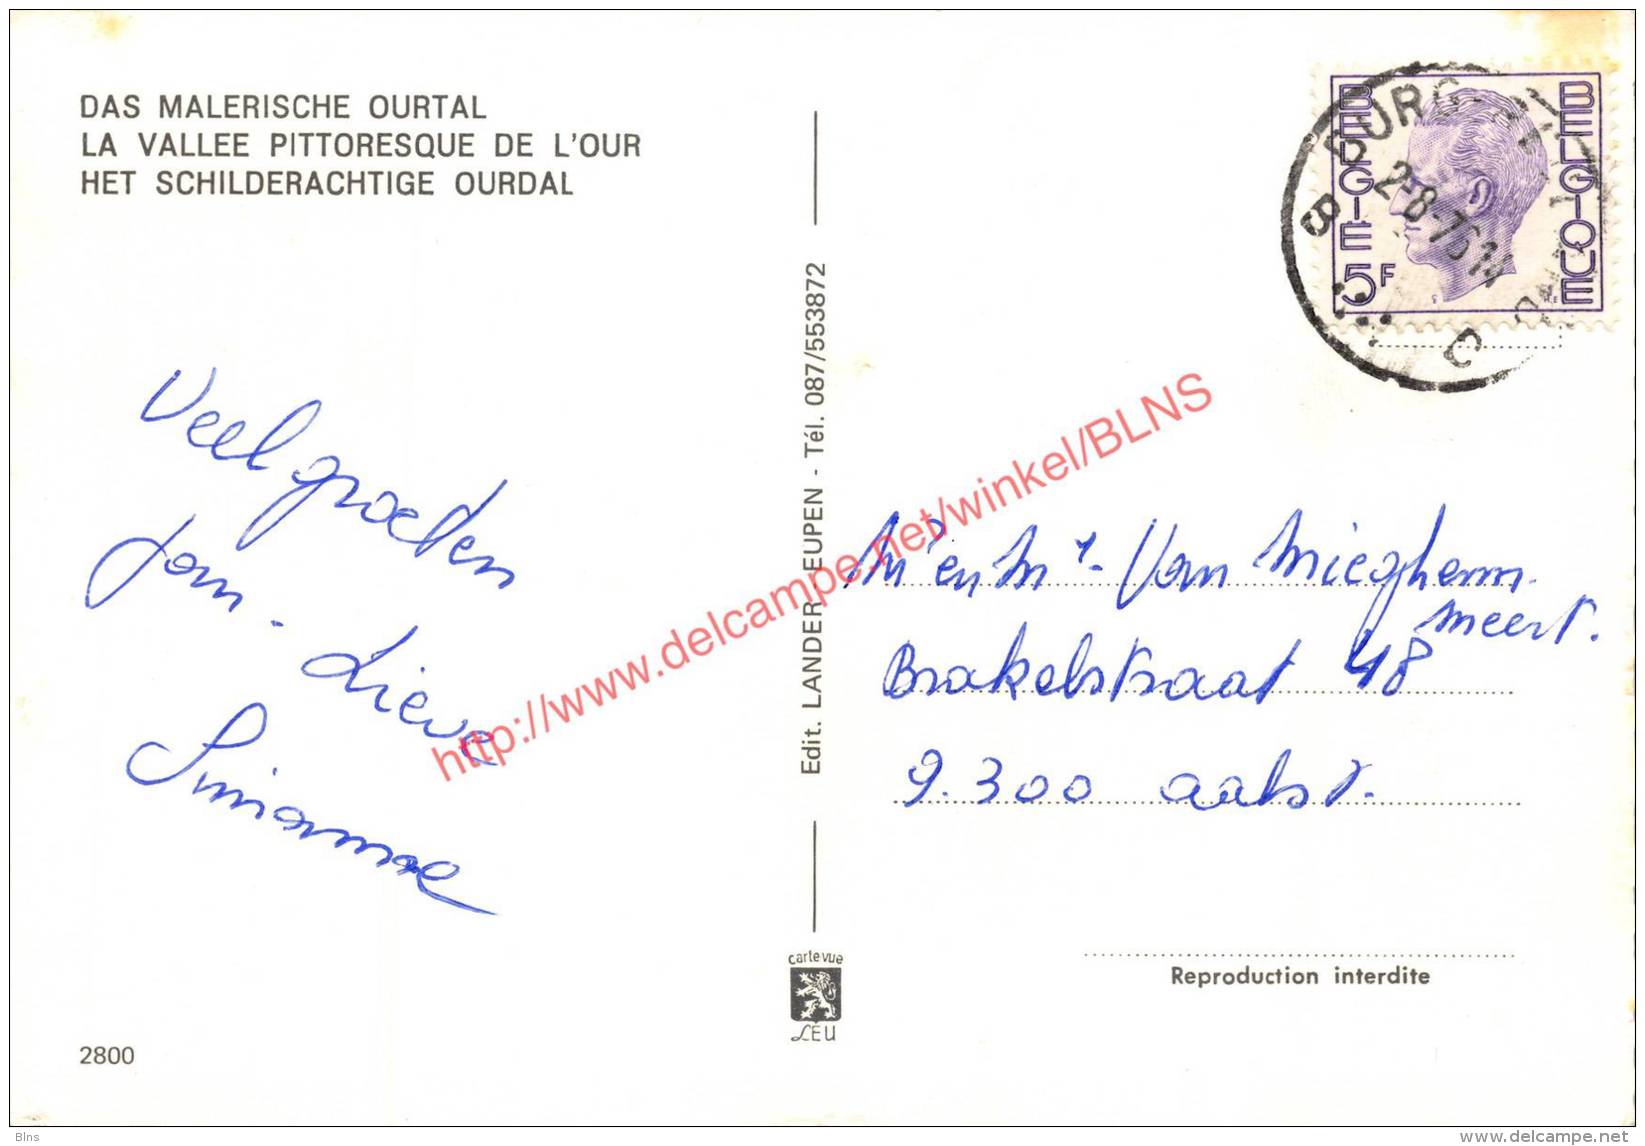 DAS MALERISCHE OURTAL
LA VALLEE PITTORESQUE DE L'OUR
HET SCHILDERACHTIGE OURDAL
Veel groeten
Jan - Lieve
2800
Edit. LANDER - EUPEN - Tél. 087/553872
carte vue
LEU
BELGIE
BELGIQUE
5F
B
BURG-
2-8-76
C
Mr en Mr Van Mieghem
Meert.
Brakelstraat 48
9.300 aalst.
Reproduction interdite
http://www.delcampe.net/winkel/BLNS
Blns
delcampe.net